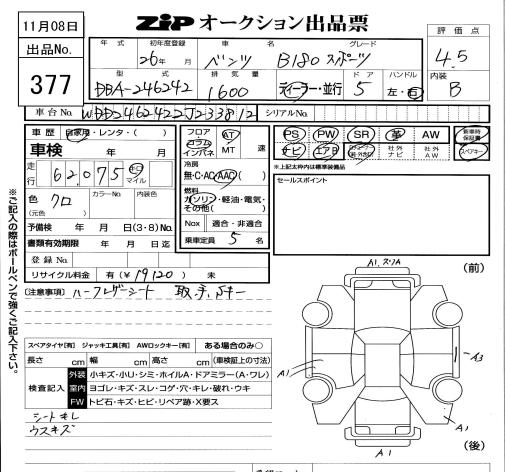 11月08日
ZIP オークション出品票
評価点
出品No.
377
年式
初年度登録
車名
グレード
4.5
26年 月
ベンツ
B180 スポーツ
型式
排気量
ドア
ハンドル
内装
DBA-246242
1600
ディーラー・並行
5
左・右
B
車台No.
WDD2462422J233812
シリアルNo.
車歴
自家用・レンタ・( )
フロア
コラム
インパネ
AT
MT
速
PS
PW
SR
革
AW
新車時保証書
車検
年 月
ナビ
エアB
社外ナビ
社外AW
スペアキー
※上記太枠内は標準装備品
走行
62,075
キロ
マイル
冷房
無・C・AC・AAC
セールスポイント
色
クロ
(元色)
カラーNo.
内装色
燃料
ガソリン・軽油・電気・
その他( )
予備検 年 月 日(3・8)No.
Nox
適合・非適合
書類有効期限 年 月 日迄
乗車定員 5 名
登録No.
リサイクル料金 有(¥ 19120 ) 未
【注意事項】 ハーフレザーシート 取、手、Sキー
A1.スリA
(前)
A3
A1
A1
A1
(後)
スペアタイヤ【有】 ジャッキ工具【有】 AWロックキー【有】 ある場合のみ○
長さ cm 幅 cm 高さ cm (車検証上の寸法)
検査記入
外装 小キズ・小U・シミ・ホイルA・ドアミラー(A・ワレ)
室内 ヨゴレ・キズ・スレ・コゲ・穴・キレ・破れ・ウキ
FW トビ石・キズ・ヒビ・リペア跡・X要ス
シートキレ
ウスキズ
※ご記入の際はボールペンで強くご記入下さい。